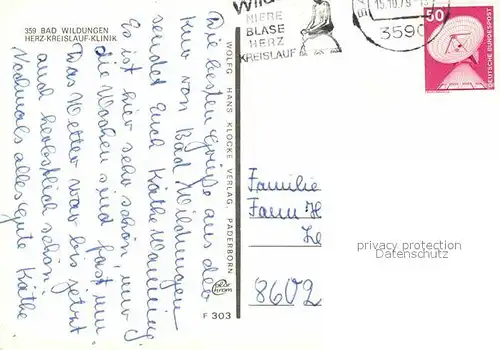 359 BAD WILDUNGEN
HERZ-KREISLAUF-KLINIK
Die besten Grüße aus der
Kur von Bad Wildungen
sendet Euch Käthe
Es ist hier sehr schön, nur
die Wochen sind fast um
Das Wetter war bis jetzt
auch herbstlich schön.
Nochmals alles Gute Käthe
WOLFG. HANS KLOCKE VERLAG, PADERBORN
F 303
Wild
NIERE
BLASE
HERZ
KREISLAUF
15.10.79
3590
50
DEUTSCHE BUNDESPOST
Familie
8602
privacy protection
DATENSCHUTZ